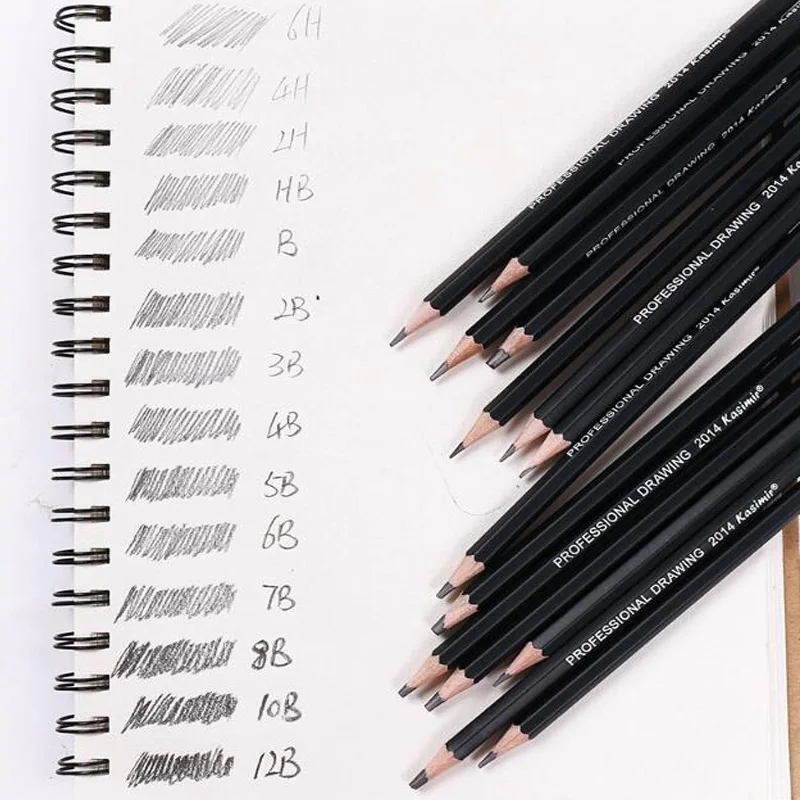 6H
4H
2H
HB
B
2B
3B
4B
5B
6B
7B
8B
10B
12B
PROFESSIONAL DRAWING 2014 Kasimir
PROFESSIONAL DRAWING 2014 Kasimir
PROFESSIONAL DRAWING 2014 Kasimir®
PROFESSIONAL DRAWING 2014
PROFESSIONAL DRAWING 2014 Kasimir®
PROFESSIONAL DRAWING 2014 Kasimir®
PROFESSIONAL DRAWING 2014 Kasimir®